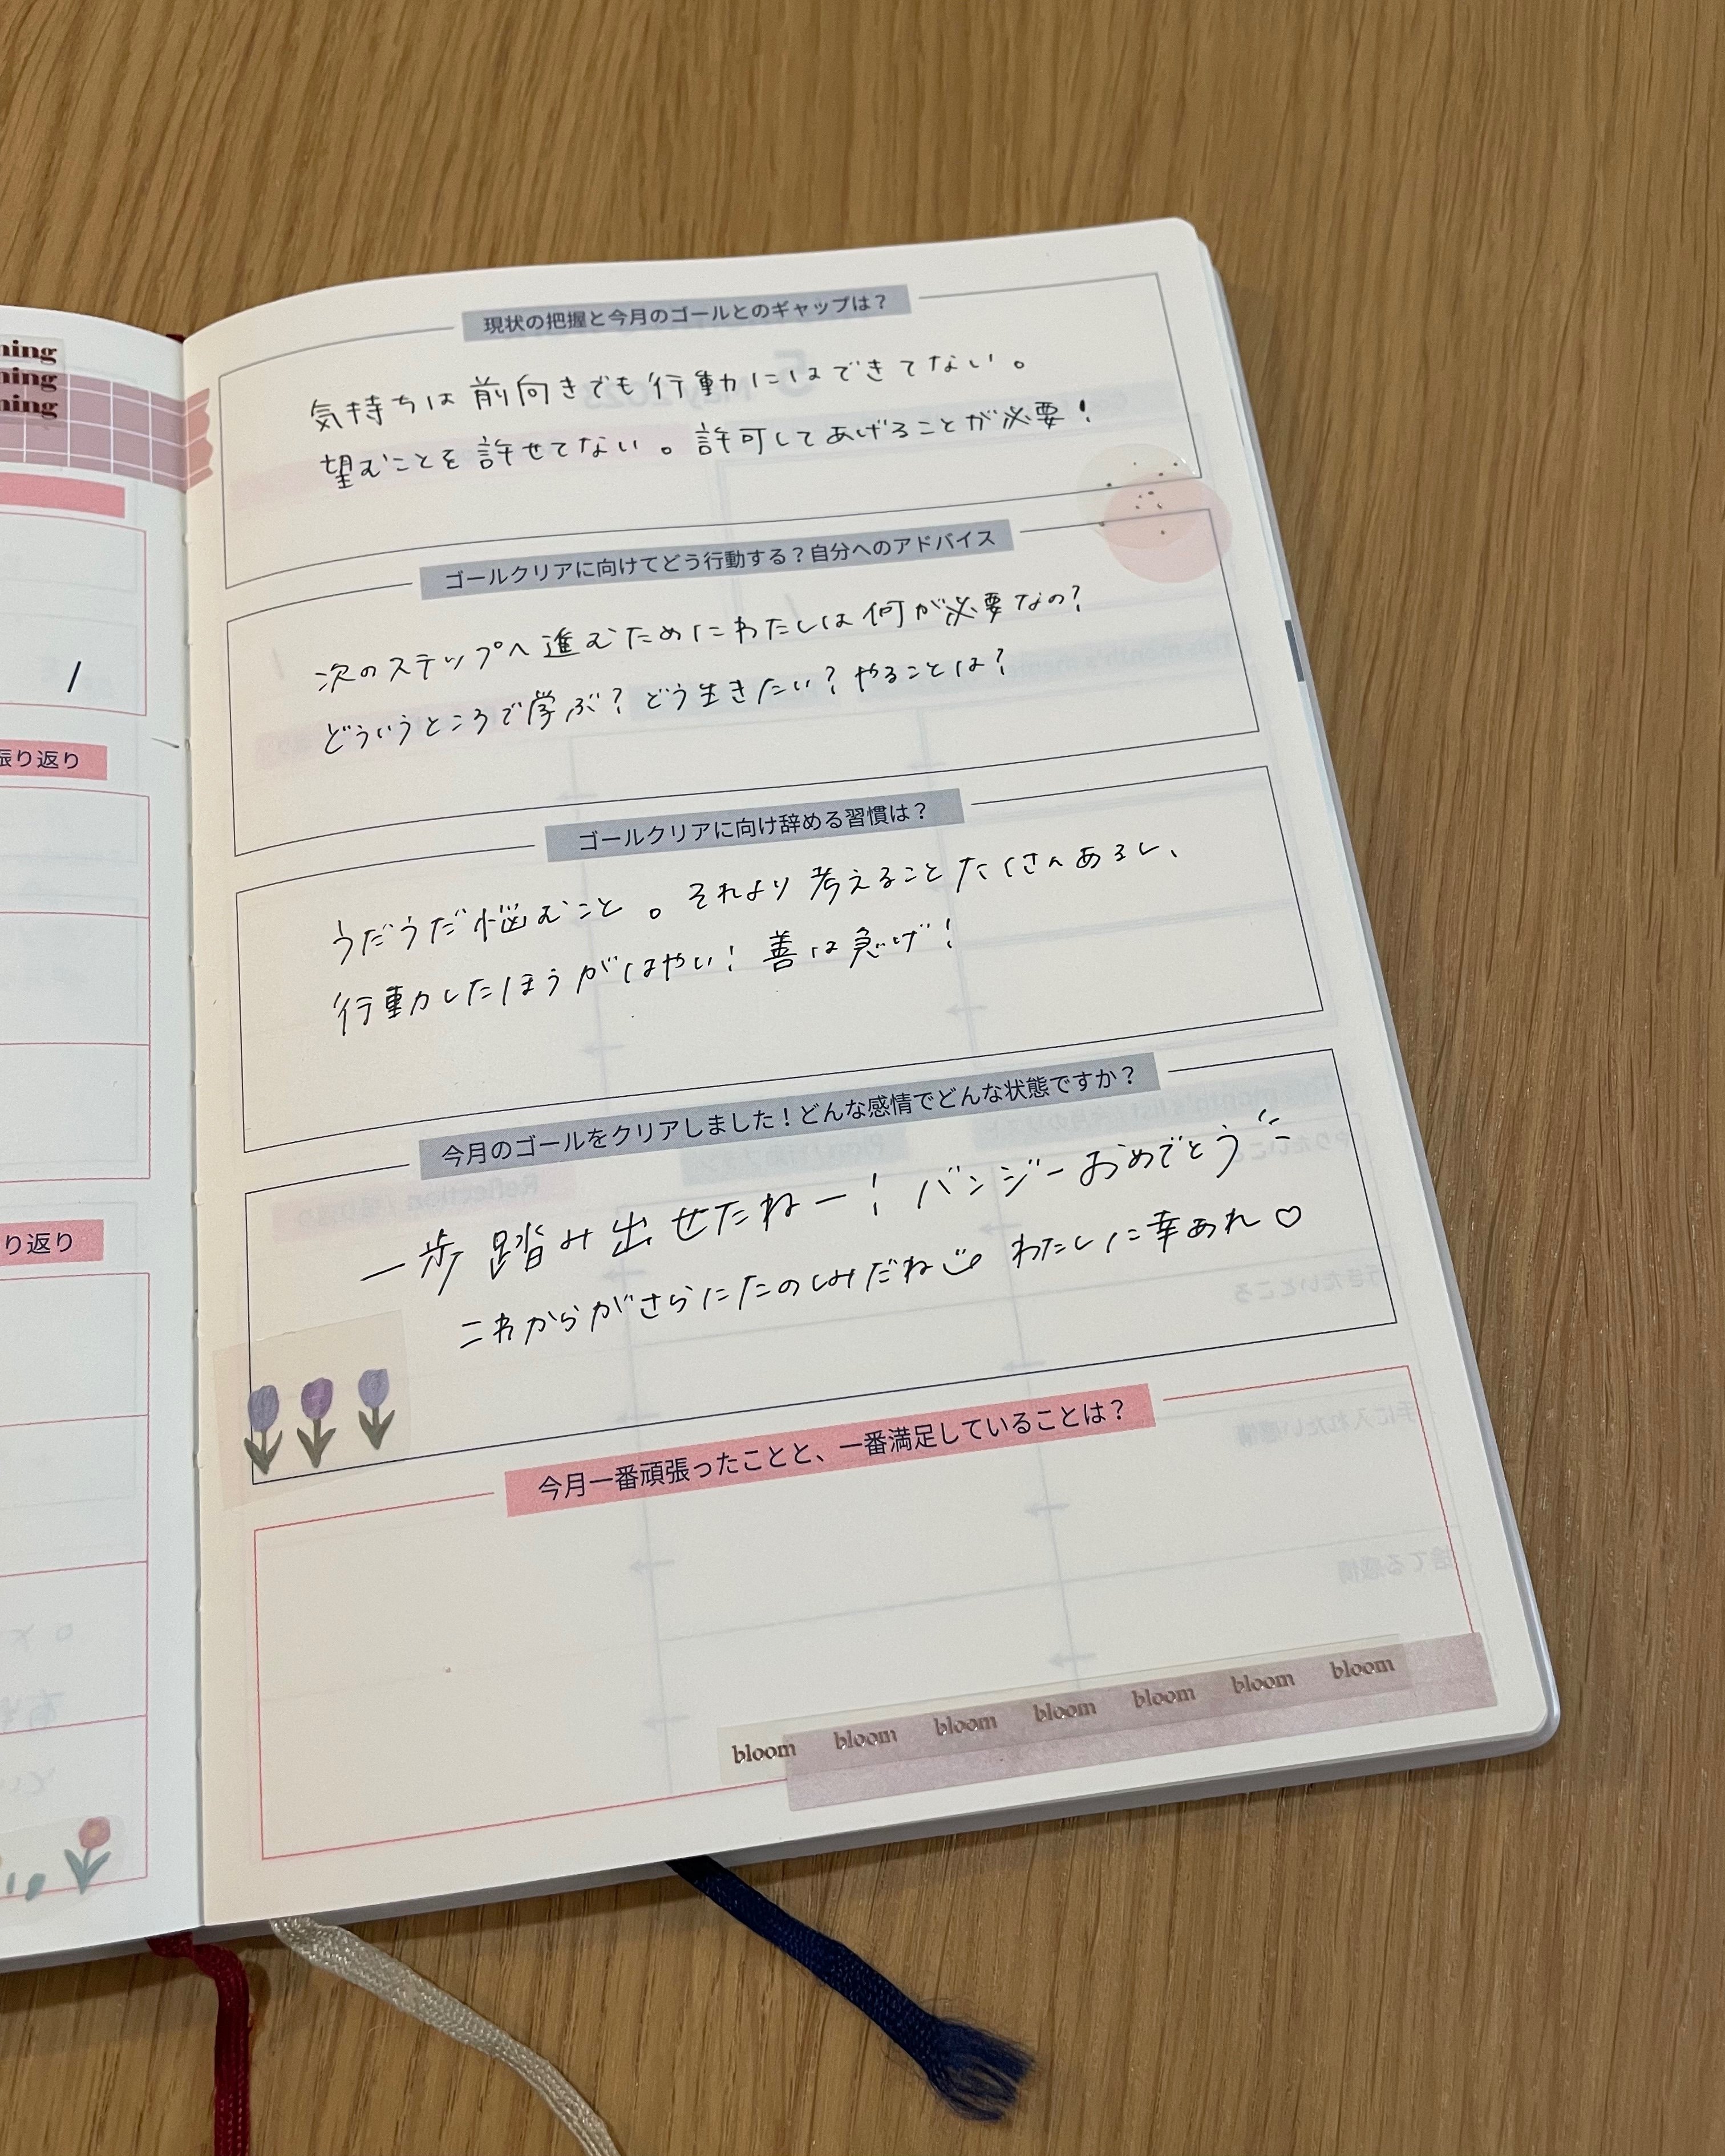 ning
ning
ning
振り返り
り返り
現状の把握と今月のゴールとのギャップは？
気持ちは前向きでも行動にはできてない。
望むことを許せてない。許可してあげることが必要！
ゴールクリアに向けてどう行動する？自分へのアドバイス
次のステップへ進むためにわたしは何が必要なの？
どういうところで学ぶ？どう生きたい？やることは？
ゴールクリアに向け辞める習慣は？
うだうだ悩むこと。それより考えることたくさんあるし、
行動したほうがはやい！善は急げ！
今月のゴールをクリアしました！どんな感情でどんな状態ですか？
一歩踏み出せたねー！バンジーおめでとう
これからがさらにたのしみだね わたしに幸あれ♡
今月一番頑張ったことと、一番満足していることは？
bloom bloom bloom bloom bloom bloom bloom